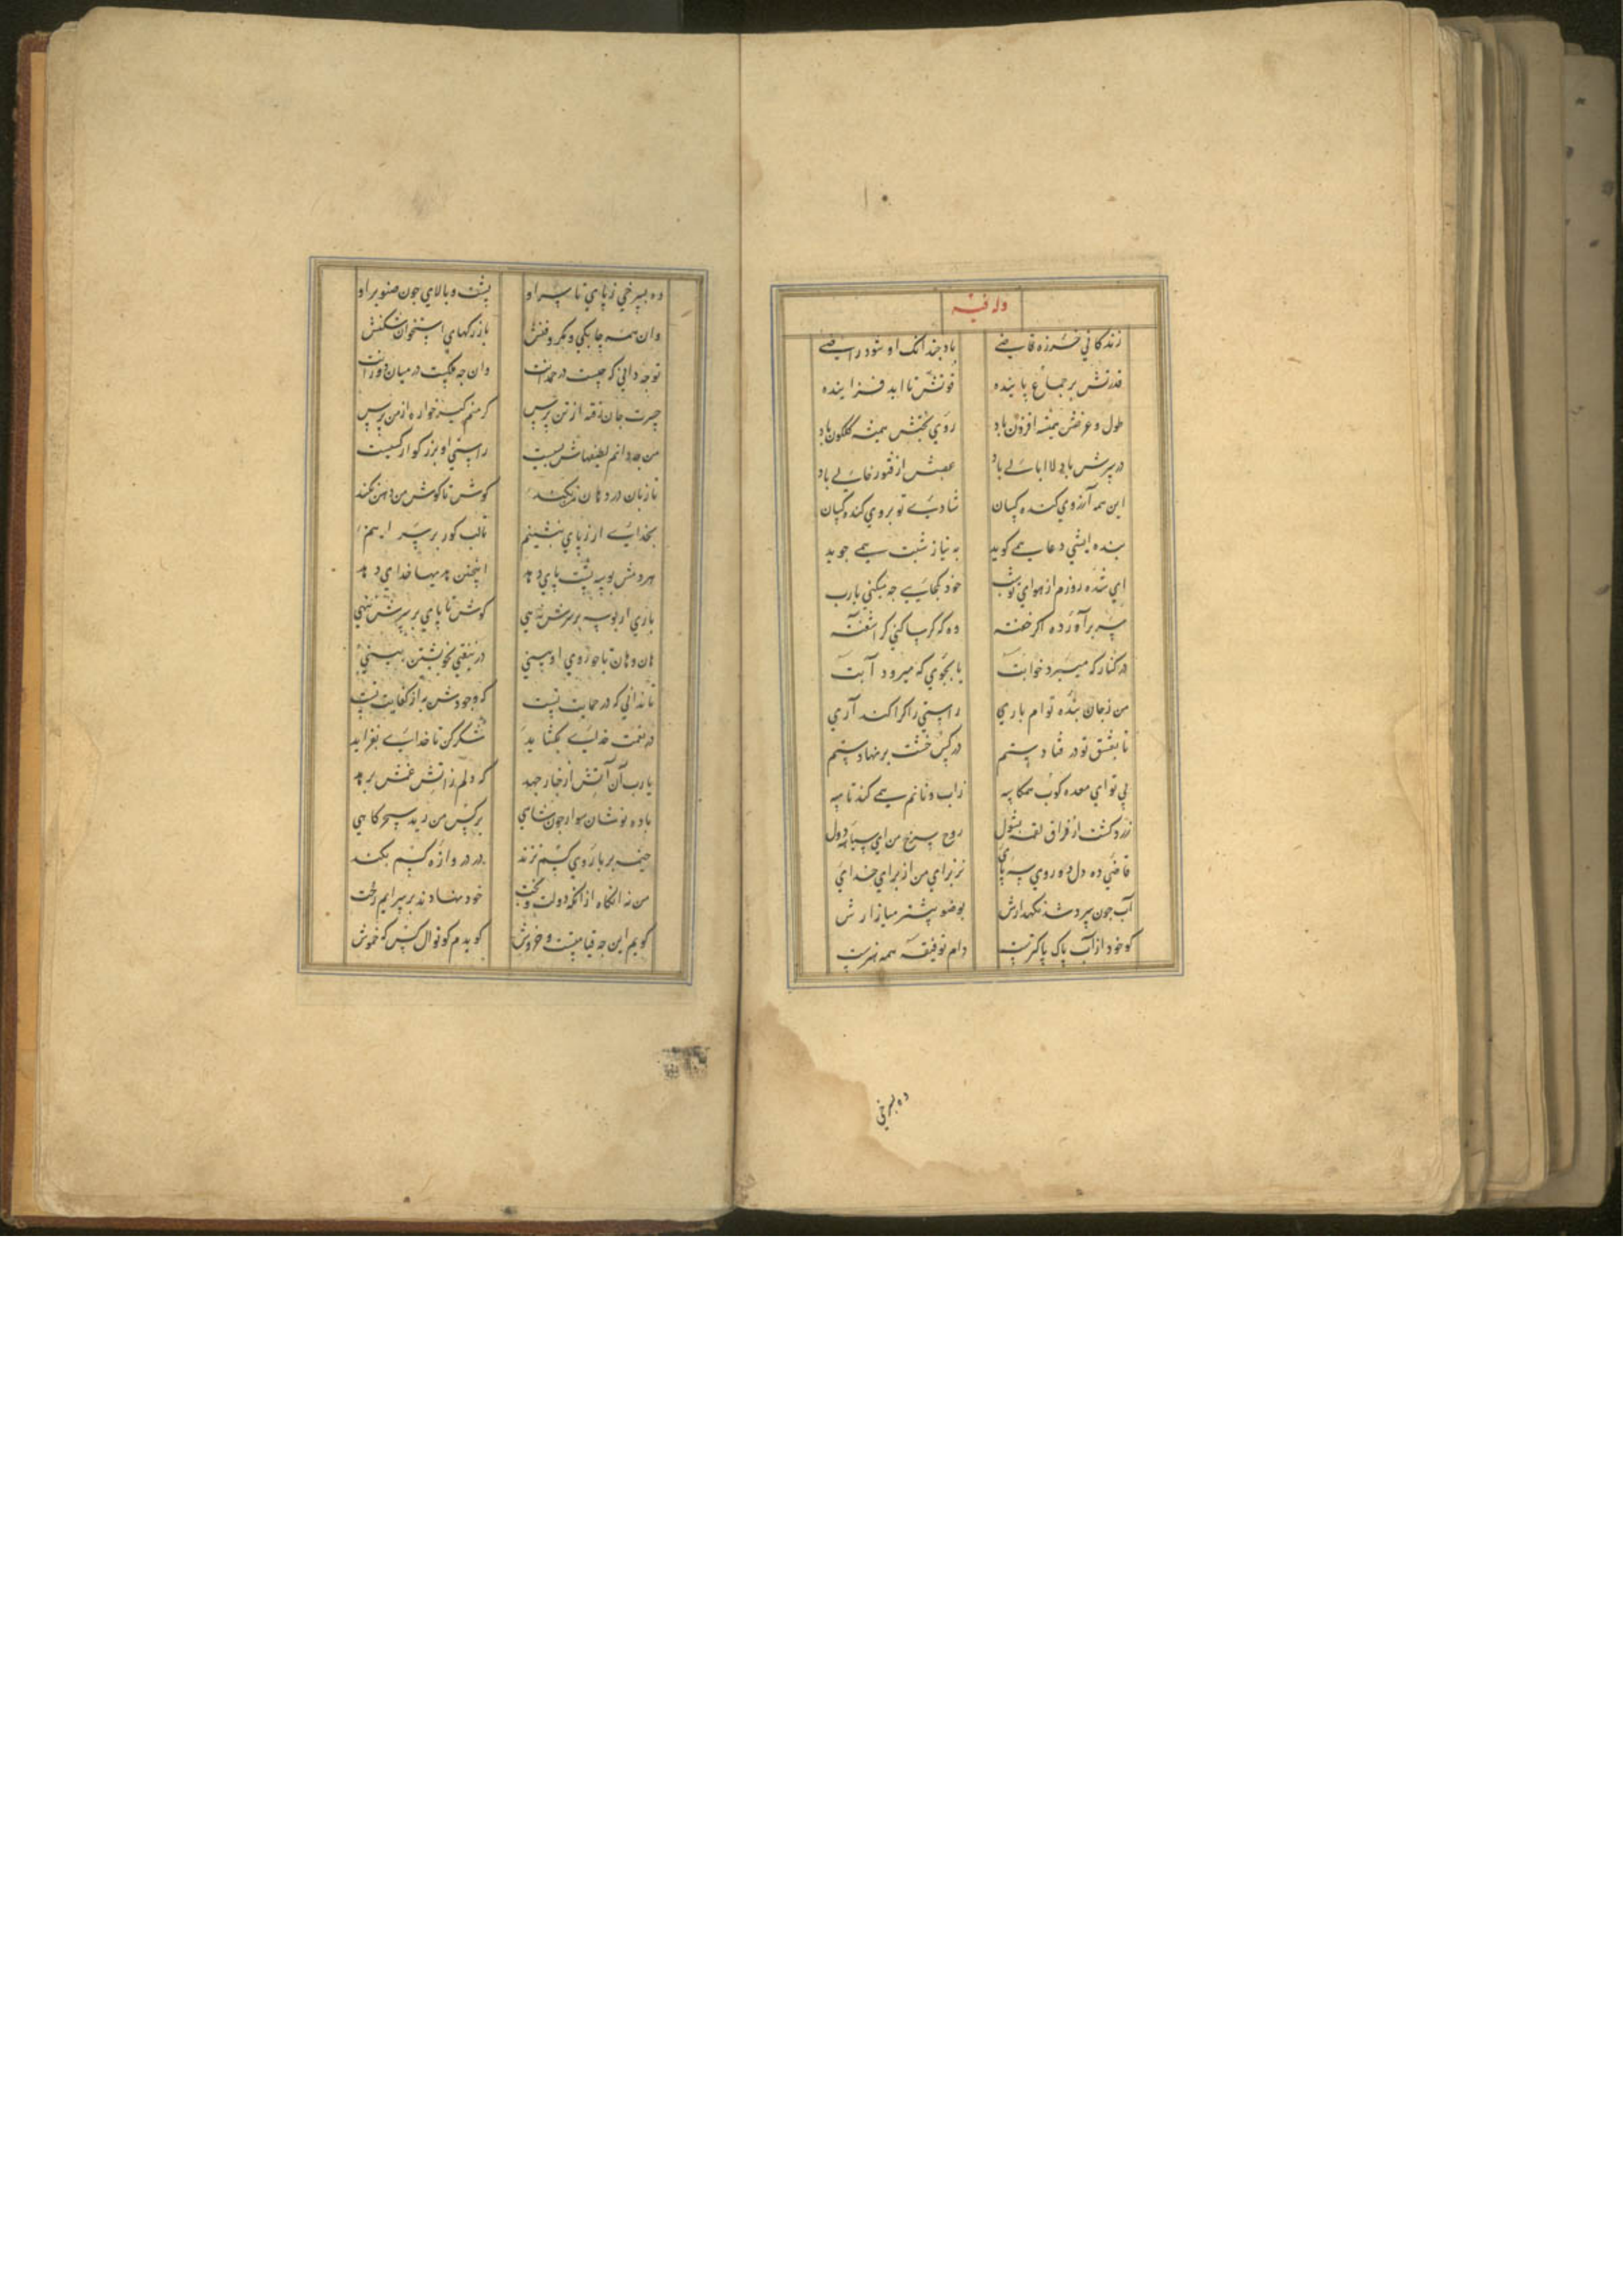 وله فیه
زندکانی خرزه قاضی
باد چندانک او شود راضی
قدرتش بر جماع پاینده
قوتش تا ابد فزاینده
طول و عرضش همیشه افزون باد
روی بختش همیشه گلگون باد
در سرش باد لاابالی باد
عصبش از فتور خالی باد
این همه آرزوی کنده کسان
شادیی تو بروی کنده کسان
بنده ایشی دعا همی کوید
به نیاز شبت همی جوید
ای شده روزم از هوای تو شب
خود کجایی جه میکنی یارب
سر برآورده اکر خفته
وه که کرپا کنی کر اشفته
در کنار که میبرد خوابت
یا بجوی که میرود آبت
من زجان بنده توام باری
راستی را کرا کند آری
تا بعشق تو در فتادستم
در کس خشت بر نهادستم
بی تو ای معده کوب همکاسه
زاب و نانم همی کند تاسه
زرد کشت از فراق لقمه بشول
روح سرخ من ای سیاه دول
قاضی ده دل ده روی سه پای
نز برای من از برای خدای
آب جون سرد شد نکهدارش
بوضو بیشتر میازارش
کو خود از آب پاک پاکترست
دام توفیقه همه هنرست
ده بسرخی
وه بسرخی ز پای تا سر او
پشت و بالای جون صنوبر او
وان همه چابکی و مکر و فنش
بازرکهای استخوان شکنش
توجه دانی که چیست در حمدانت
وان جه مکیت در میان دورانت
حسرت جان زقه از تن پرس
کر منم کیرخواره از من پرس
من جه دانم لطیفهاش بسیت
راستی او بزرکوار کسیت
تا زبان در دهان من نکند
کوش تا کوش من دهن نکند
بخدایی ار ز پای بنشینم
تالب کور بر سر اینم
هر دمش بوسه پشت پای دهد
اینچنین هدیها خدای دهد
باری ار بوسه بر سرش ننهی
کوش تا پای بر سرش ننهی
هان و هان تا جو روی او بینی
در نیفتی بخویشتن بینی
تا ندانی که در حمایت نیست
که وجودش به از کفایت نیست
در نعمت خدایی بکشاید
شکر کن تا خدایی بفزاید
یارب آن آتش از خیار جهد
که دلم زاتش غمش برهد
باده نوشان سوار جون شاهی
بر کس من رسد سحرکاهی
خیمه بر باروی کسم نزند
در دروازه کسم بکند
من نه انکاه از انکه دولت و بخت
خود نهادند بر سرایم رخت
کویم این جه قیامتست و خروش
کویدم کوتوال کس که خموش